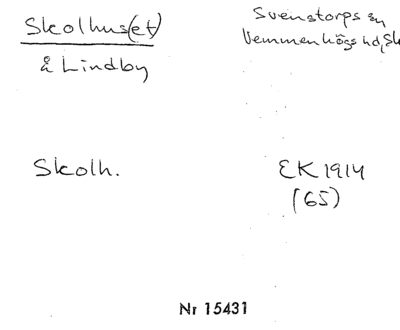 Skolhus(et)
å Lindby
Svenstorps sn
Vemmenhögs hd, Sk
Skolh.
EK 1914
(65)
Nr 15431